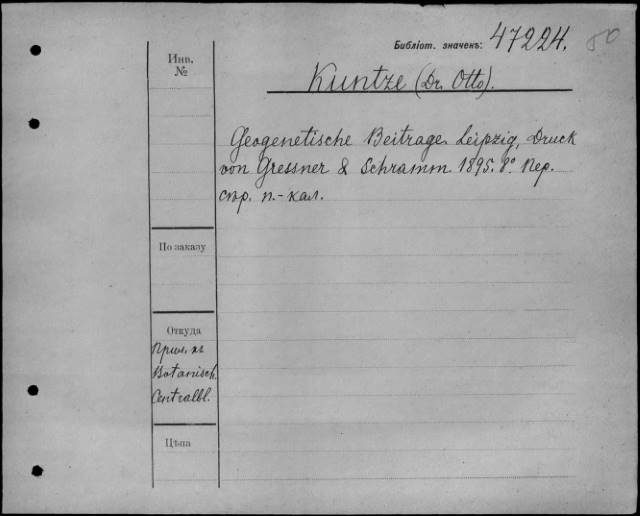 Библіот. значекъ: 47224. 80
Инв.
№
Kuntze (Dr. Otto).
Geogenetische Beitrage. Leipzig, Druck
von Gressner & Schramm 1895. 8° Пер.
стр. п.-кал.
По заказу
Откуда
Прил. къ
Botanisch.
Centralbl.
Цѣна